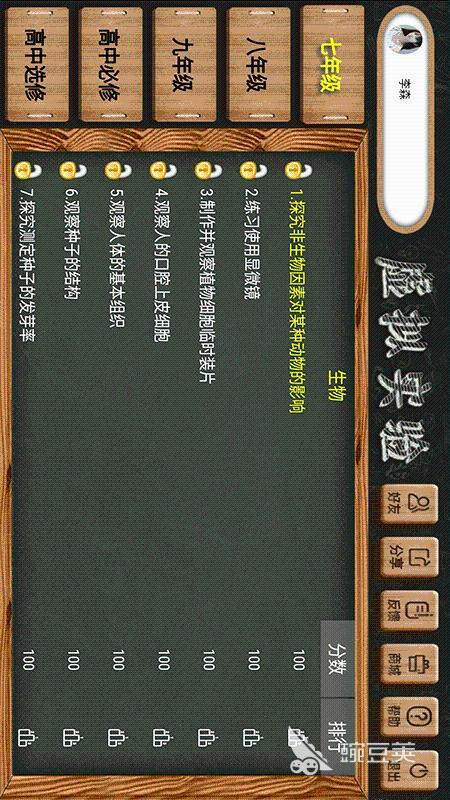 李森
虚拟实验
好友
分享
反馈
商城
帮助
退出
七年级
八年级
九年级
高中必修
高中选修
生物
分数
排行
1.探究非生物因素对某种动物的影响
100
2.练习使用显微镜
100
3.制作并观察植物细胞临时装片
100
4.观察人的口腔上皮细胞
100
5.观察人体的基本组织
100
6.观察种子的结构
100
7.探究测定种子的发芽率
100
豌豆荚